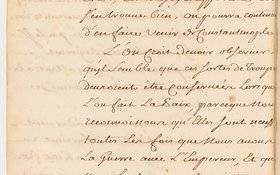 s'en trouve bien, on pourra continuer
d'en faire venir de Constantinople
L'On croit devoir observer
qu'il semble que ces sortes de Troupes
devroient être conservées Lors que
L'on fait La Paix, parceque Nous
reconnoissons qu'elles sont
toutes Les fois que Nous avons
La Guerre avec L'Empereur, Le que